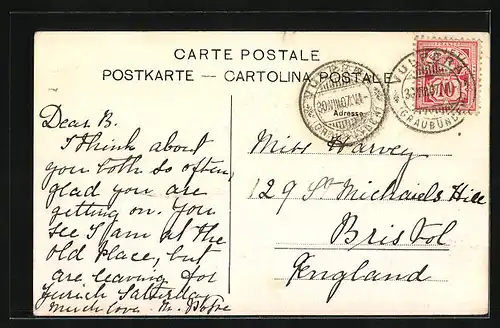 CARTE POSTALE
POSTKARTE — CARTOLINA POSTALE
VULPERA
30.VIII.07.VI-
Adresse
VULPERA
(GRAUBÜND
10
Dear B.
I think about
you both so often,
glad you are
getting on. You
see I am at the
Old Place, but
are leaving for
Zurich Satterday
much love. M.
Miss Harvey
129 St Michaels Hill
Bristol
England